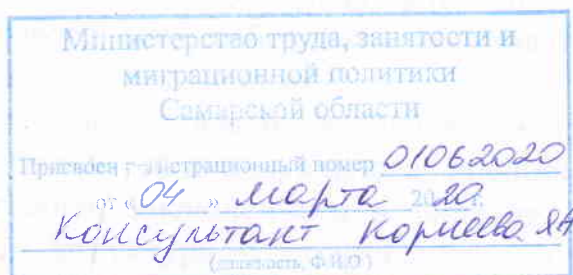 Министерство труда, занятости и
миграционной политики
Самарской области
Присвоен регистрационный номер 01062020
от «04» марта 2020 г.
Консультант
(должность, Ф.И.О)